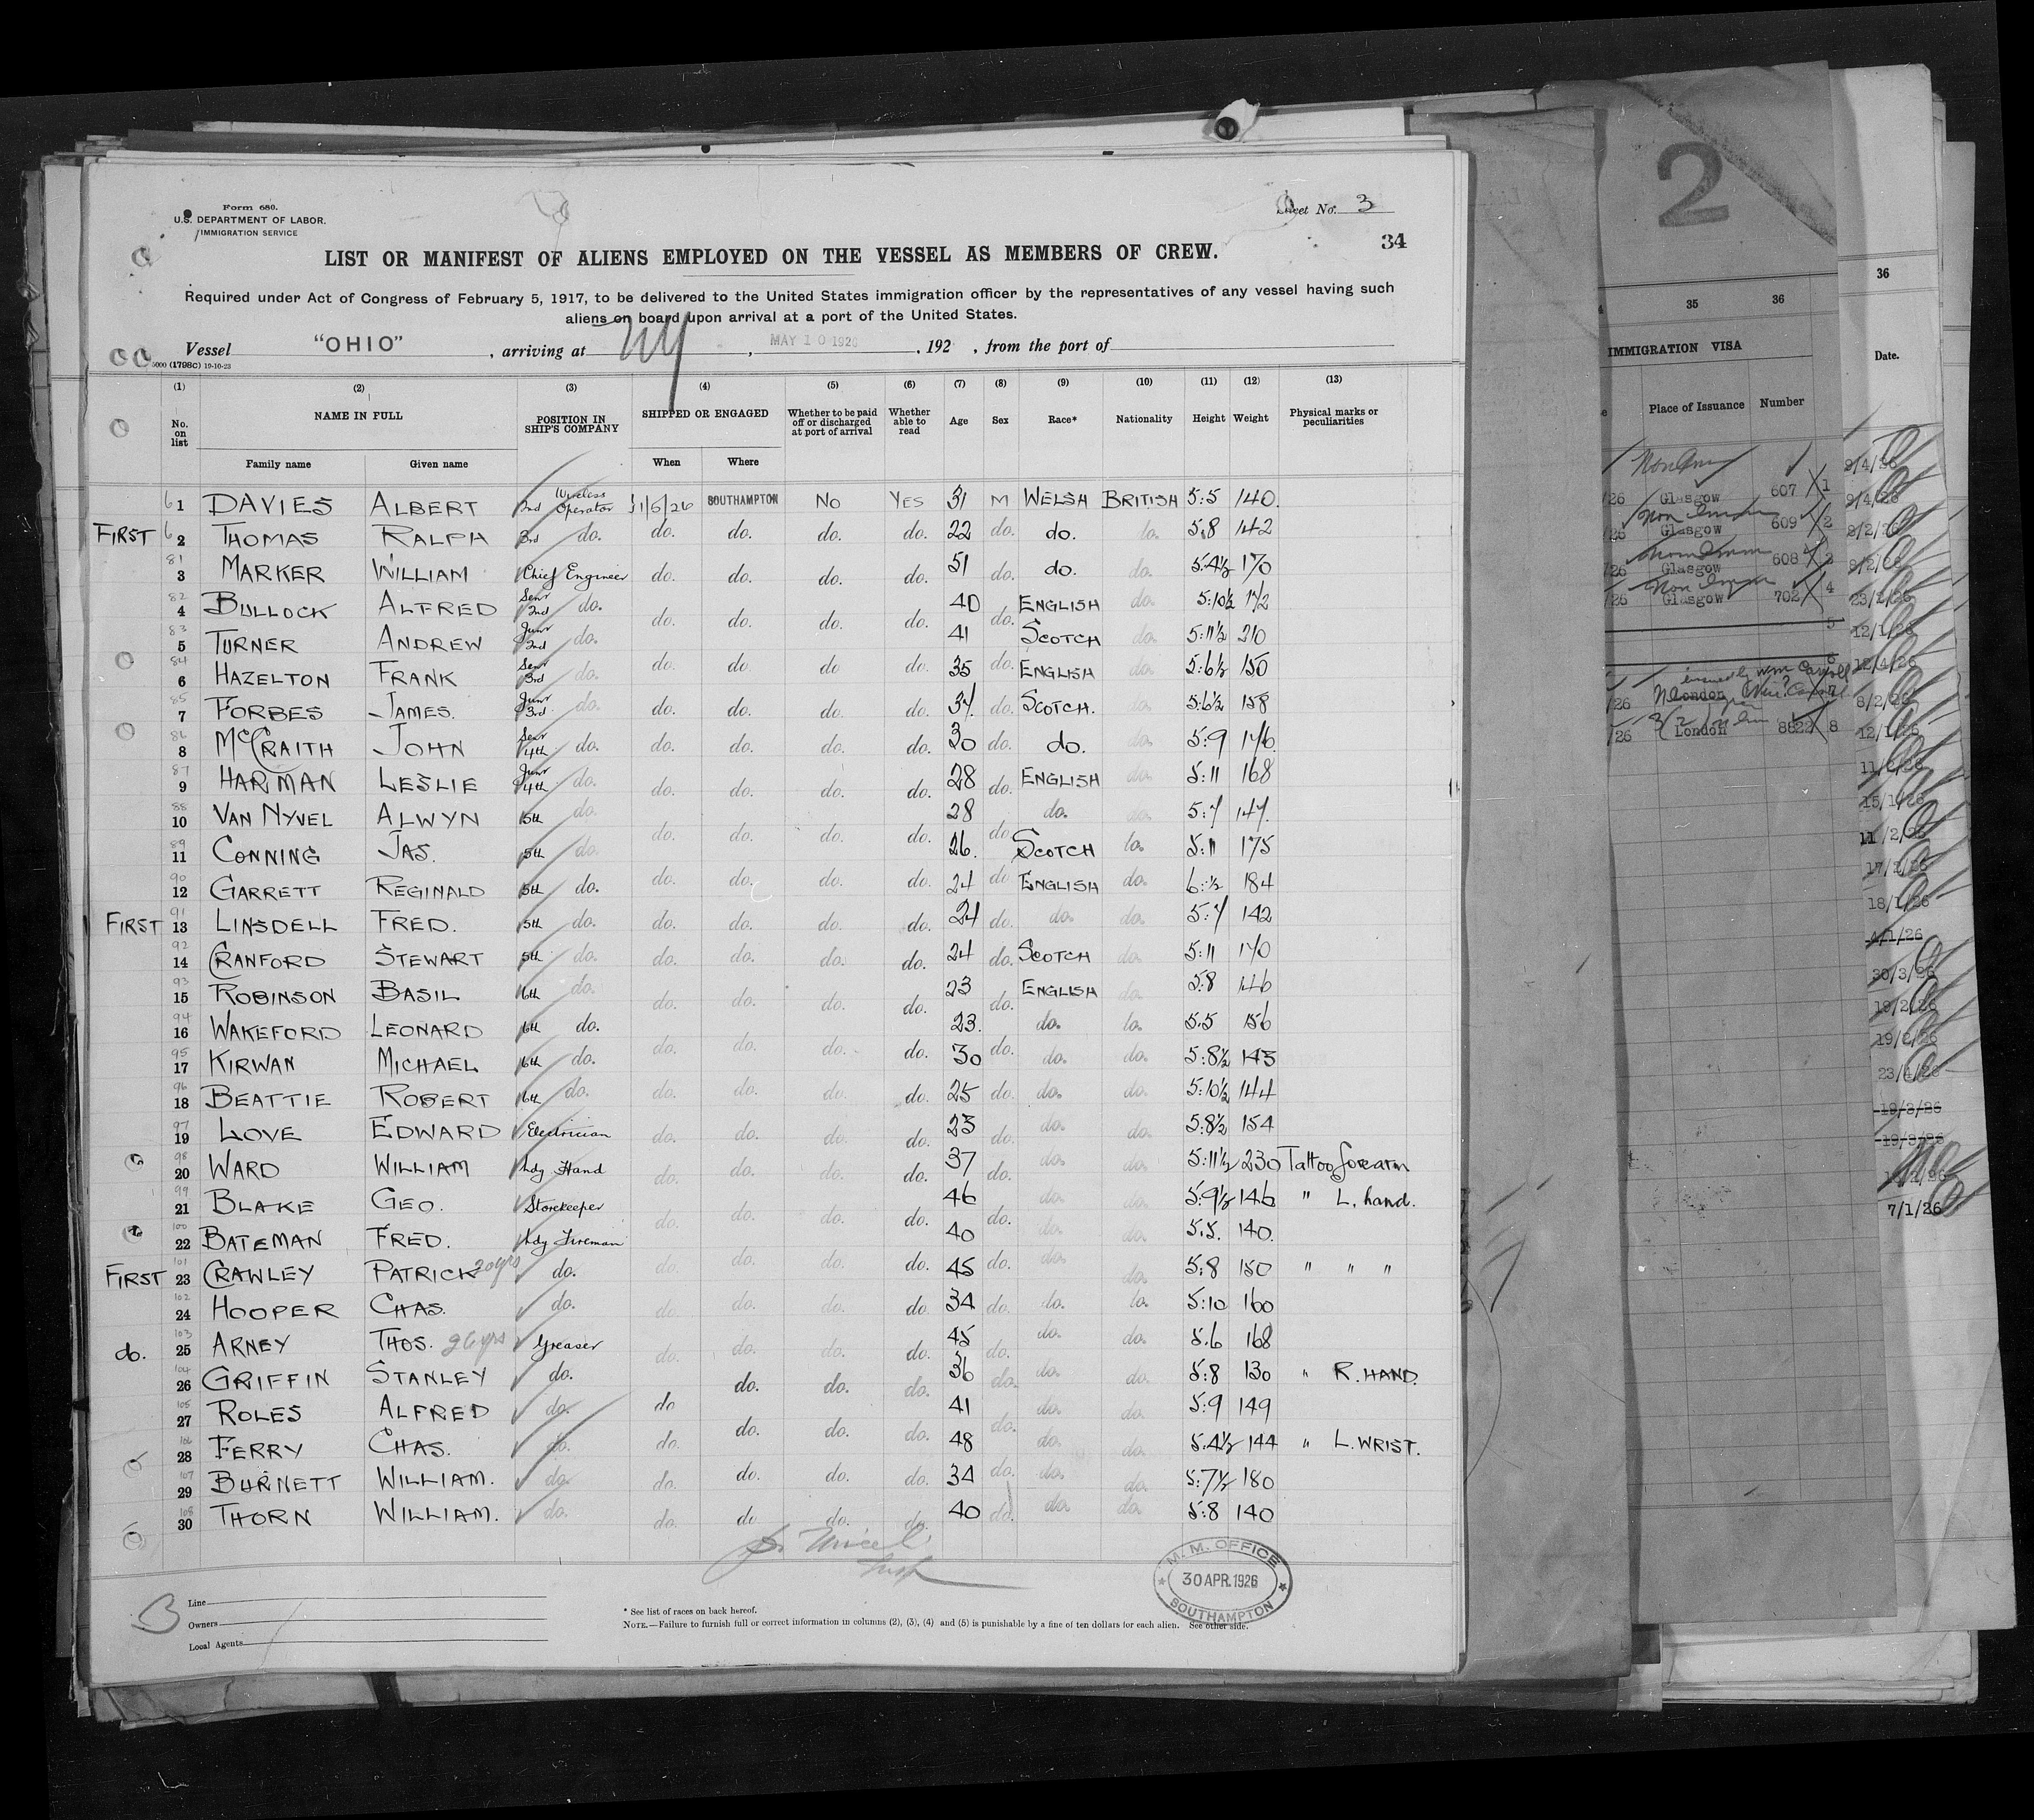 Form 680.
U.S. DEPARTMENT OF LABOR.
IMMIGRATION SERVICE
Sheet No. 3
34
LIST OR MANIFEST OF ALIENS EMPLOYED ON THE VESSEL AS MEMBERS OF CREW.
Required under Act of Congress of February 5, 1917, to be delivered to the United States immigration officer by the representatives of any vessel having such
aliens on board upon arrival at a port of the United States.
Vessel "OHIO", arriving at NY, MAY 10 1926, 192 , from the port of
5000 (1798C) 19-10-23
(1) (2) (3) (4) (5) (6) (7) (8) (9) (10) (11) (12) (13)
No. on list NAME IN FULL POSITION IN SHIP'S COMPANY SHIPPED OR ENGAGED Whether to be paid off or discharged at port of arrival Whether able to read Age Sex Race* Nationality Height Weight Physical marks or peculiarities
Family name Given name When Where
6 1 DAVIES ALBERT 2nd Wireless Operator 1/5/26 SOUTHAMPTON NO YES 31 M WELSH BRITISH 5:5 140.
FIRST 6 2 THOMAS RALPH 3rd do. do. do. do. do. 22 do. do. do. 5:8 142
81 3 MARKER WILLIAM Chief Engineer do. do. do. do. 51 do. do. do. 5:4½ 170
82 4 BULLOCK ALFRED Senr 2nd do. do. do. do. do. 40 do. ENGLISH do. 5:10½ 172
83 5 TURNER ANDREW Junr 2nd do. 41 SCOTCH do. 5:11½ 210
84 6 HAZELTON FRANK Senr 3rd do. do. do. do do. 35 do. ENGLISH do. 5:6½ 150
85 7 FORBES JAMES. Junr 3rd do. do. do. do. do. 34. do. SCOTCH. do. 5:6½ 158
86 8 McCRAITH JOHN Senr 4th do. do. do. do. do. 30 do. do. do. 5:9 176
87 9 HARMAN LESLIE Junr 4th do. do. do. do. do. 28 do. ENGLISH do. 5:11 168
88 10 VAN NYVEL ALWYN 5th do. do. do. do. do. 28 do. do. do. 5:7 147.
89 11 CONNING JAS. 5th do. 26. SCOTCH do. 5:11 175
90 12 GARRETT REGINALD 5th do. do. do. do. do. 24 do ENGLISH do. 6:½ 184
FIRST 91 13 LINSDELL FRED. 5th do. do. do. do. do. 24 do. do. do. 5:7 142
92 14 CRANFORD STEWART 5th do. do. do. do. do. 24 do. SCOTCH do. 5:11 170
93 15 ROBINSON BASIL 6th do. do. do. do. do. 23 do. ENGLISH do. 5:8 146
94 16 WAKEFORD LEONARD 6th do. 23. do. do. 5.5 156
95 17 KIRWAN MICHAEL 6th do. do. do. do. do. 30 do. do. do. 5:8½ 143
96 18 BEATTIE ROBERT 6th do. do. do. do. do. 25 do. do. do. 5:10½ 144
97 19 LOVE EDWARD Electrician do. do. do. do. 23 do. do. do. 5:8½ 154
98 20 WARD WILLIAM Ldg Hand do. do. do. do. 37 do. do. do. 5:11½ 230 Tattoo forearm
99 21 BLAKE GEO. Storekeeper do. do. do. do. 46 do. do. do. 5:9½ 146 " L. hand.
100 22 BATEMAN FRED. Ldg Fireman 40 do. do. 5.5. 140.
FIRST 101 23 CRAWLEY PATRICK 20yrs do. do. do. do. do. 45 do. do. do. 5:8 150 " " "
102 24 HOOPER CHAS. do. do. do. do. do. 34 do. do. do. 5:10 160
do. 103 25 ARNEY THOS. 26 yrs Greaser do. do. do. do. 45 do. do. do. 5.6 168
104 26 GRIFFIN STANLEY do. do. do. do. 36 do. do. do. 5:8 130 " R. HAND.
105 27 ROLES ALFRED do. do 41 do. do. 5:9 149
106 28 FERRY CHAS. do. do. do. do. do. 48 do. do. do. 5.4½ 144 " L. WRIST.
107 29 BURNETT WILLIAM. do. do. do. do. do. 34 do. do. do. 5:7½ 180
108 30 THORN WILLIAM. do. do. do do. do. 40 do. do do 5:8 140
M. M. OFFICE
30 APR. 1926
SOUTHAMPTON
Line
Owners
Local Agents
* See list of races on back hereof.
NOTE.—Failure to furnish full or correct information in columns (2), (3), (4) and (5) is punishable by a fine of ten dollars for each alien. See other side.
2
35 36
IMMIGRATION VISA
Place of Issuance Number
/26 Glasgow 607 1
/26 Glasgow 609 2
/26 Glasgow 608 3
/26 Glasgow 702 4
5
6
/26 London 7
/26 London 8822 8
36
Date.
9/4/26
9/4/26
8/2/26
8/2/26
23/2/26
12/1/26
12/4/26
8/2/26
12/1/26
11/2/26
15/1/26
11/2/26
17/2/26
18/1/26
4/1/26
30/3/26
19/2/26
19/2/26
23/4/26
19/3/26
19/3/26
7/1/26